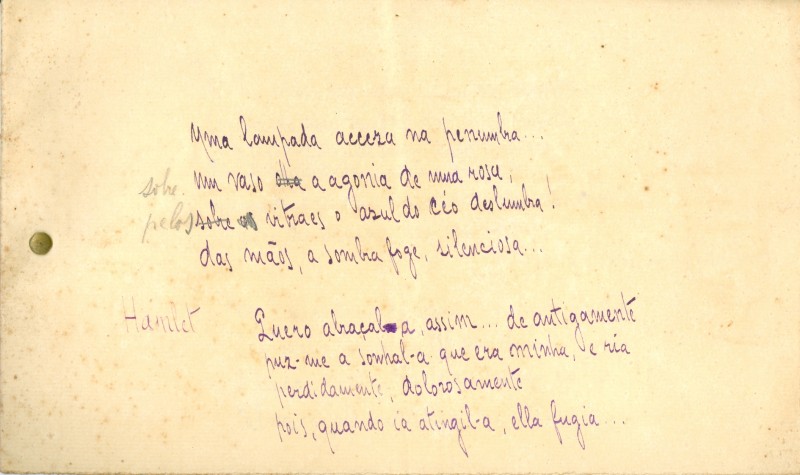 Uma lampada acceza na penumbra...
um vaso a agonia de uma rosa,
sobre
pelos sobre os vitraes o azul do céo deslumbra!
das mãos, a sombra foge, silenciosa...
Hamlet Quero abraçal-a, assim... de antigamente
puz-me a sonhal-a que era minha, e ria
perdidamente, dolorosamente
pois, quando ia atingil-a, ella fugia...